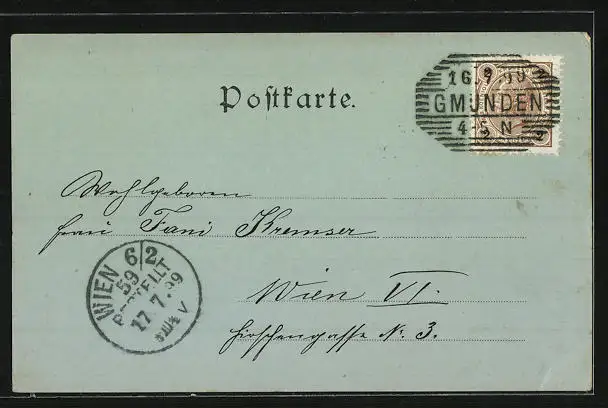 16 7 99
GMUNDEN
4-5 N
2
2
Postkarte.
Wohlgeboren
Frau Fani Kremser
Wien VI.
Hirschengasse No. 3.
WIEN 6/2
59
BESTELLT
17.7.99
V